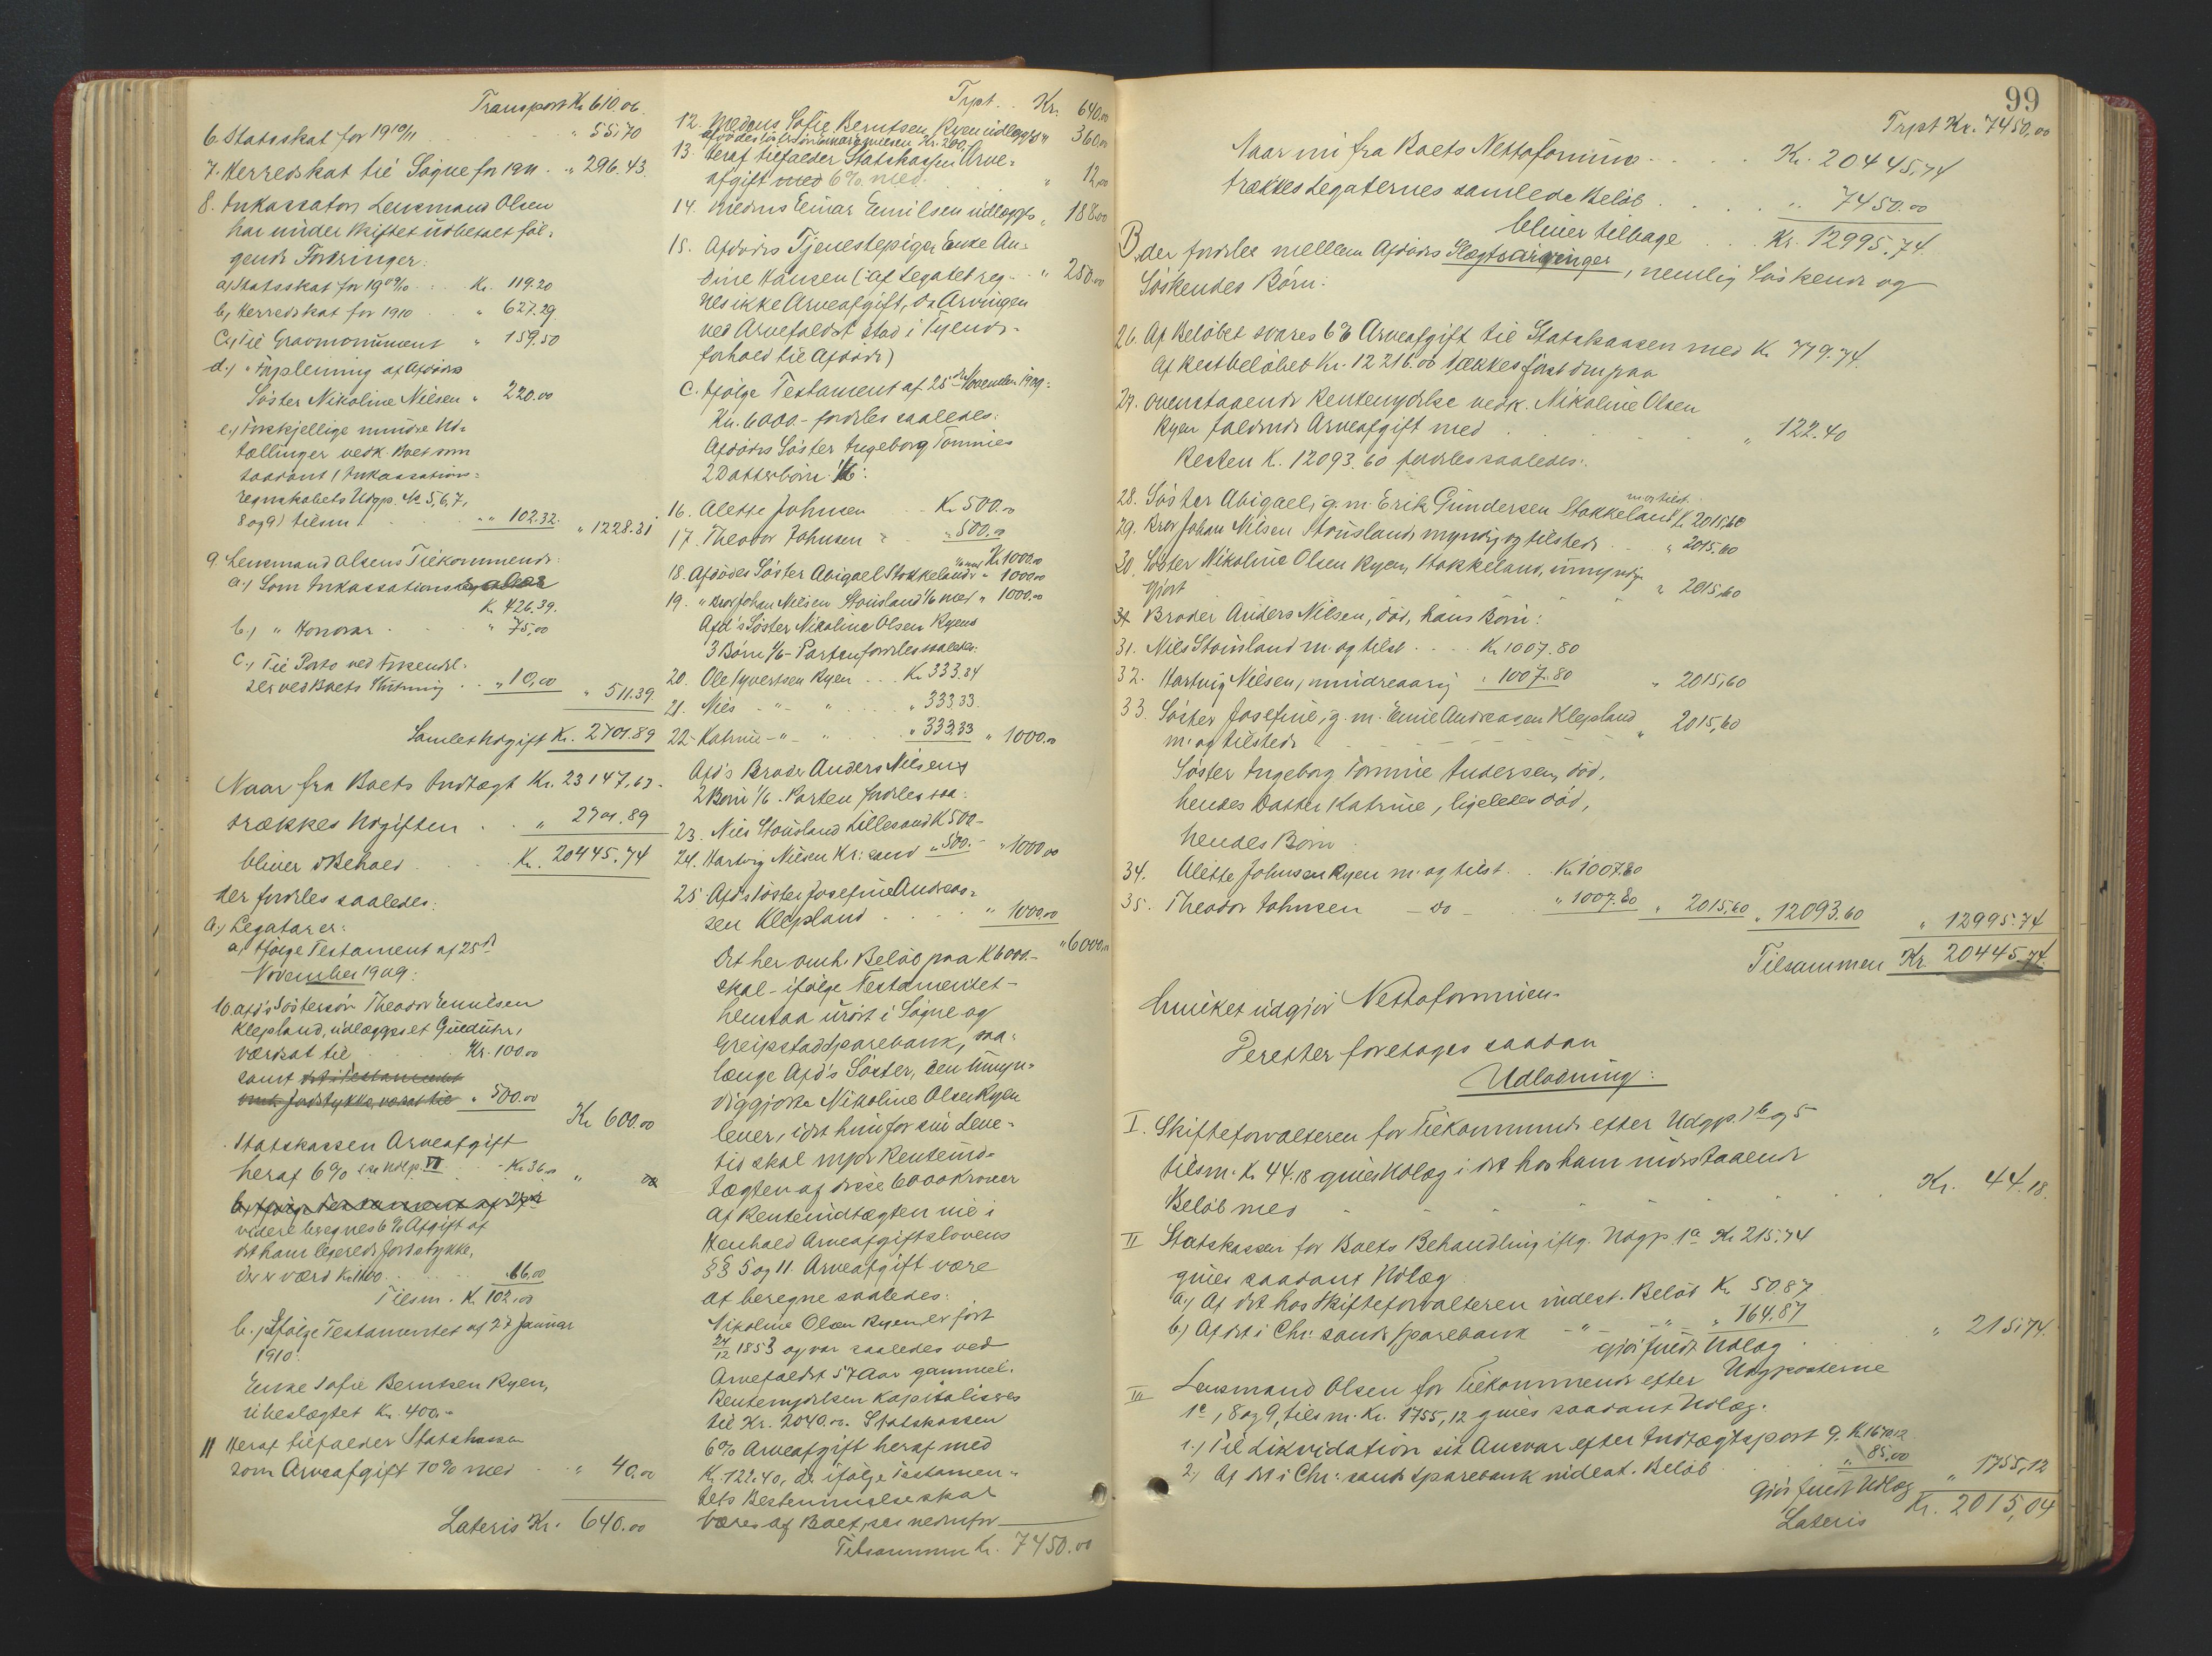 Transport Kr 610.06
6. Statsskat for 1910/11 . . " 55.70
7. Herredskat til Søgne for 1911 . " 296.43.
8. Inkassator, Lensmand Olsen
har under Skiftet udbetalt føl-
gende Fordringer:
a) Statsskat for 1909/10 . . Kr. 119.20
b) Herredskat for 1910 . . " 627.29
c) Til Gravmonument " 159.50
d.) " Forpleining af Afdødes
Søster Nikoline Nilsen " 220.00
e.) Forskjellige mindre Ud-
tællinger vedk. Boet som
saadant (Inkassations-
regnskabets Udgp. No 5, 6, 7,
8 og 9) tilsm. . . " 102.32. " 1228.31
9. Lensmand Olsens Tilkommende:
a.) Som Inkassations
Kr. 426.39.
b.) " Honorar . . " 75,00
c.) Til Porto ved Forsendel-
ser ved Boets Slutning . . " 10,00 " 511.39.
Samlet Udgift Kr. 2701.89
Naar fra Boets Indtægt Kr. 23147,63.
trækkes Udgiften . . " 2701.89
bliver i Behold . . Kr. 20445.74
der fordeles saaledes:
A.) Legatarer:
a) Ifølge Testament af 25de
November 1909:
10. Afd's Søstersøn Theodor Emilsen
Klepland, udlægges et Guldur,
værdsat til . . Kr. 100.00
samt det i Testamentet
omh. Jordstykke, værdsat til " 500.00
Kr 600.00
Statskassen Arveafgift
heraf 6% se Udlp. VII . . Kr 36.00 "
b) Ifølge Testament af
videre beregnes 6% Afgift af
det ham legerede Jordstykke,
der er værd Kr. 1100 . . 66,00
Tilsm. Kr 102.00
b.) Ifølge Testamentet af 27 Januar
1910:
Enke Sofie Berntsen Ryen,
ubeslægtet Kr. 400.-
11 Heraf tilfalder Statskassen
som Arveafgift 10% med . . " 40.00
Lateris Kr. 640.00
Trpt. . Kr. 640.00
12. Medens Sofie Berntsen Ryen udlægges " 360.00
13. Heraf tilfalder Statskassen Arve-
afgift med 6% med . . " 12,00
14. Medens Einar Emilsen udlægges " 188.00
15. Afdødes Tjenestepige Enke An-
dine Hansen (af Legatet reg- . . " 250.00
nes ikke Arveafgift, da Arvingen
ved Arvefaldet stod i Tyende-
forhold til Afdøde)
C. Ifølge Testament af 25de November 1909:
Kr. 6000.- fordeles saaledes:
Afdødes Søster Ingeborg Tommies
2 Datterbørn 1/6:
16. Alette Johnsen . . Kr 500.00
17. Theodor Johnsen . . " 500.00
Kr 1000.00
18. Afdødes Søster Abigael Stokkeland " 1000.00
19. " Bror Johan Nilsen Stousland 1/6 med " 1000.00
Afd's Søster Nikoline Olsen Ryens
3 Børn 1/6 - Parten fordeles saaledes:
20. Ole Syvertsen Ryen . . Kr 333.34
21. Nils - " - " . . " 333.33.
22. Katrine - " - " . . " 333.33 " 1000.00
Afd's Broder Anders Nilsens
2 Børn 1/6 - Parten fordeles saa:
23. Nils Stousland Lillesand K 500.-
24. Hartvig Nilsen Kr: sand " 500.- " 1000.00
25. Afd's Søster Josefine Andreas-
sen Klepland . . " 1000.00
" 6000.00
Det her omh. Beløb paa K 6000.-
skal - ifølge Testamentet -
henstaa urørt i Søgne og
Greipstad Sparebank, saa-
længe Afd's Søster, den umyn-
diggjorte Nikoline Olsen Ryen
lever, idet hun for sin Leve-
tid skal nyde Renteind-
tægten af disse 6000 kroner
Af Renteindtægten vil i
Henhold Arveafgiftslovens
§§ 5 og 11. Arveafgift være
at beregne saaledes:
Nikoline Olsen Ryen er født
24/12 1853 og var saaledes ved
Arvefaldet 57 Aar gammel.
Rentenydelsen kapitaliseres
til Kr. 2040.00. Statskassen
6% Arveafgift heraf med
Kr. 122.40, der ifølge Testamen-
tets Bestemmelse skal
bæres af Boet, ses nedenfor
Tilsammen Kr. 7450.00
99
Trpt Kr. 7450,00
Naar nu fra Boets Nettoformue . . . Kr. 20445,74
trækkes Legaternes samlede Beløb . . . " 7450.00
bliver tilbage . . Kr. 12995.74.
B. der fordeles mellem Afdødes Slægtsarvinger, nemlig Søskende og
Søskendes Børn:
26. Af Beløbet svares 6% Arveafgift til Statskassen med Kr. 779.74.
Af Restbeløbet Kr. 12216.00 trækkes først ompaa
27. ovenstaaende Rentenydelse vedk. Nikoline Olsen
Ryen faldende Arveafgift med . . . " 122.40
Resten K. 12093.60 fordeles saaledes:
28. Søster Abigael, g. m. Erik Gundersen Stokkeland m. og tilst. K 2015,60
29. Bror Johan Nilsen Stousland, myndig og tilstede . . " 2015,60
30. Søster Nikoline Olsen Ryen, Stokkeland, umyndig-
gjort . . " 2015,60
31 Broder Anders Nilsen, død, hans Børn:
31. Nils Stousland m. og tilst. . . . Kr 1007.80
32. Hartvig Nilsen, mindreaarig " 1007.80 " 2015,60
33. Søster Josefine, g. m. Emil Andreasen Klepland
m. og tilstede . . " 2015,60
Søster Ingeborg Tomine Andersen, død,
hendes Datter Katrine, ligeledes død,
hendes Børn
34. Alette Johnsen Ryen m. og tilst. . . Kr 1007.80
35. Theodor Johnsen - do - " 1007.80 " 2015,60 " 12093.60 " 12995.74
Tilsammen Kr 20445.74
hvilket udgjør Nettoformuen.
Derefter foretages saadan
Udlodning:
I. Skifteforvalteren for Tilkommende efter Udgpp. 1b og 5
tilsm. Kr 44.18 gives Udlæg i det hos ham indestaaende
Beløb med . . . . Kr. 44.18.
II Statskassen for Boets Behandling iflg. Udgp. 1a Kr 215.74
gives saadant Udlæg
a.) Af det hos Skifteforvalteren indest. Beløb Kr 50,87
b.) Af det i Chr: sands Sparebank - " - " - " 164.87
gjør fuldt Udlæg . . " 215,74.
III Lensmand Olsen for Tilkommende efter Udgpposterne
1c, 8 og 9, tilsm. Kr. 1755,12 gives saadant Udlæg.
1.) Til Likvidation sit Ansvar efter Indtægtspost 9. K 1670.12
2.) Af det i Chr: sands Sparebank indest. Beløb . . " 85,00
gjør fuldt Udlæg " 1755,12
Lateris Kr. 2015,04